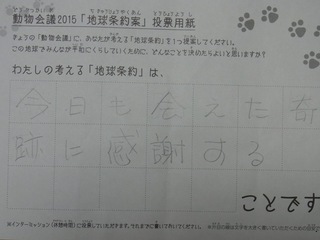 動物会議2015「地球条約案」投票用紙
きょうの「動物会議」に、あなたが考える「地球条約」を1つ提案してください。
この地球でみんなが平和にくらしていくために、どんなことを決めたらよいと思いますか?
わたしの考える「地球条約」は、
今日も会えた奇
跡に感謝する
ことです